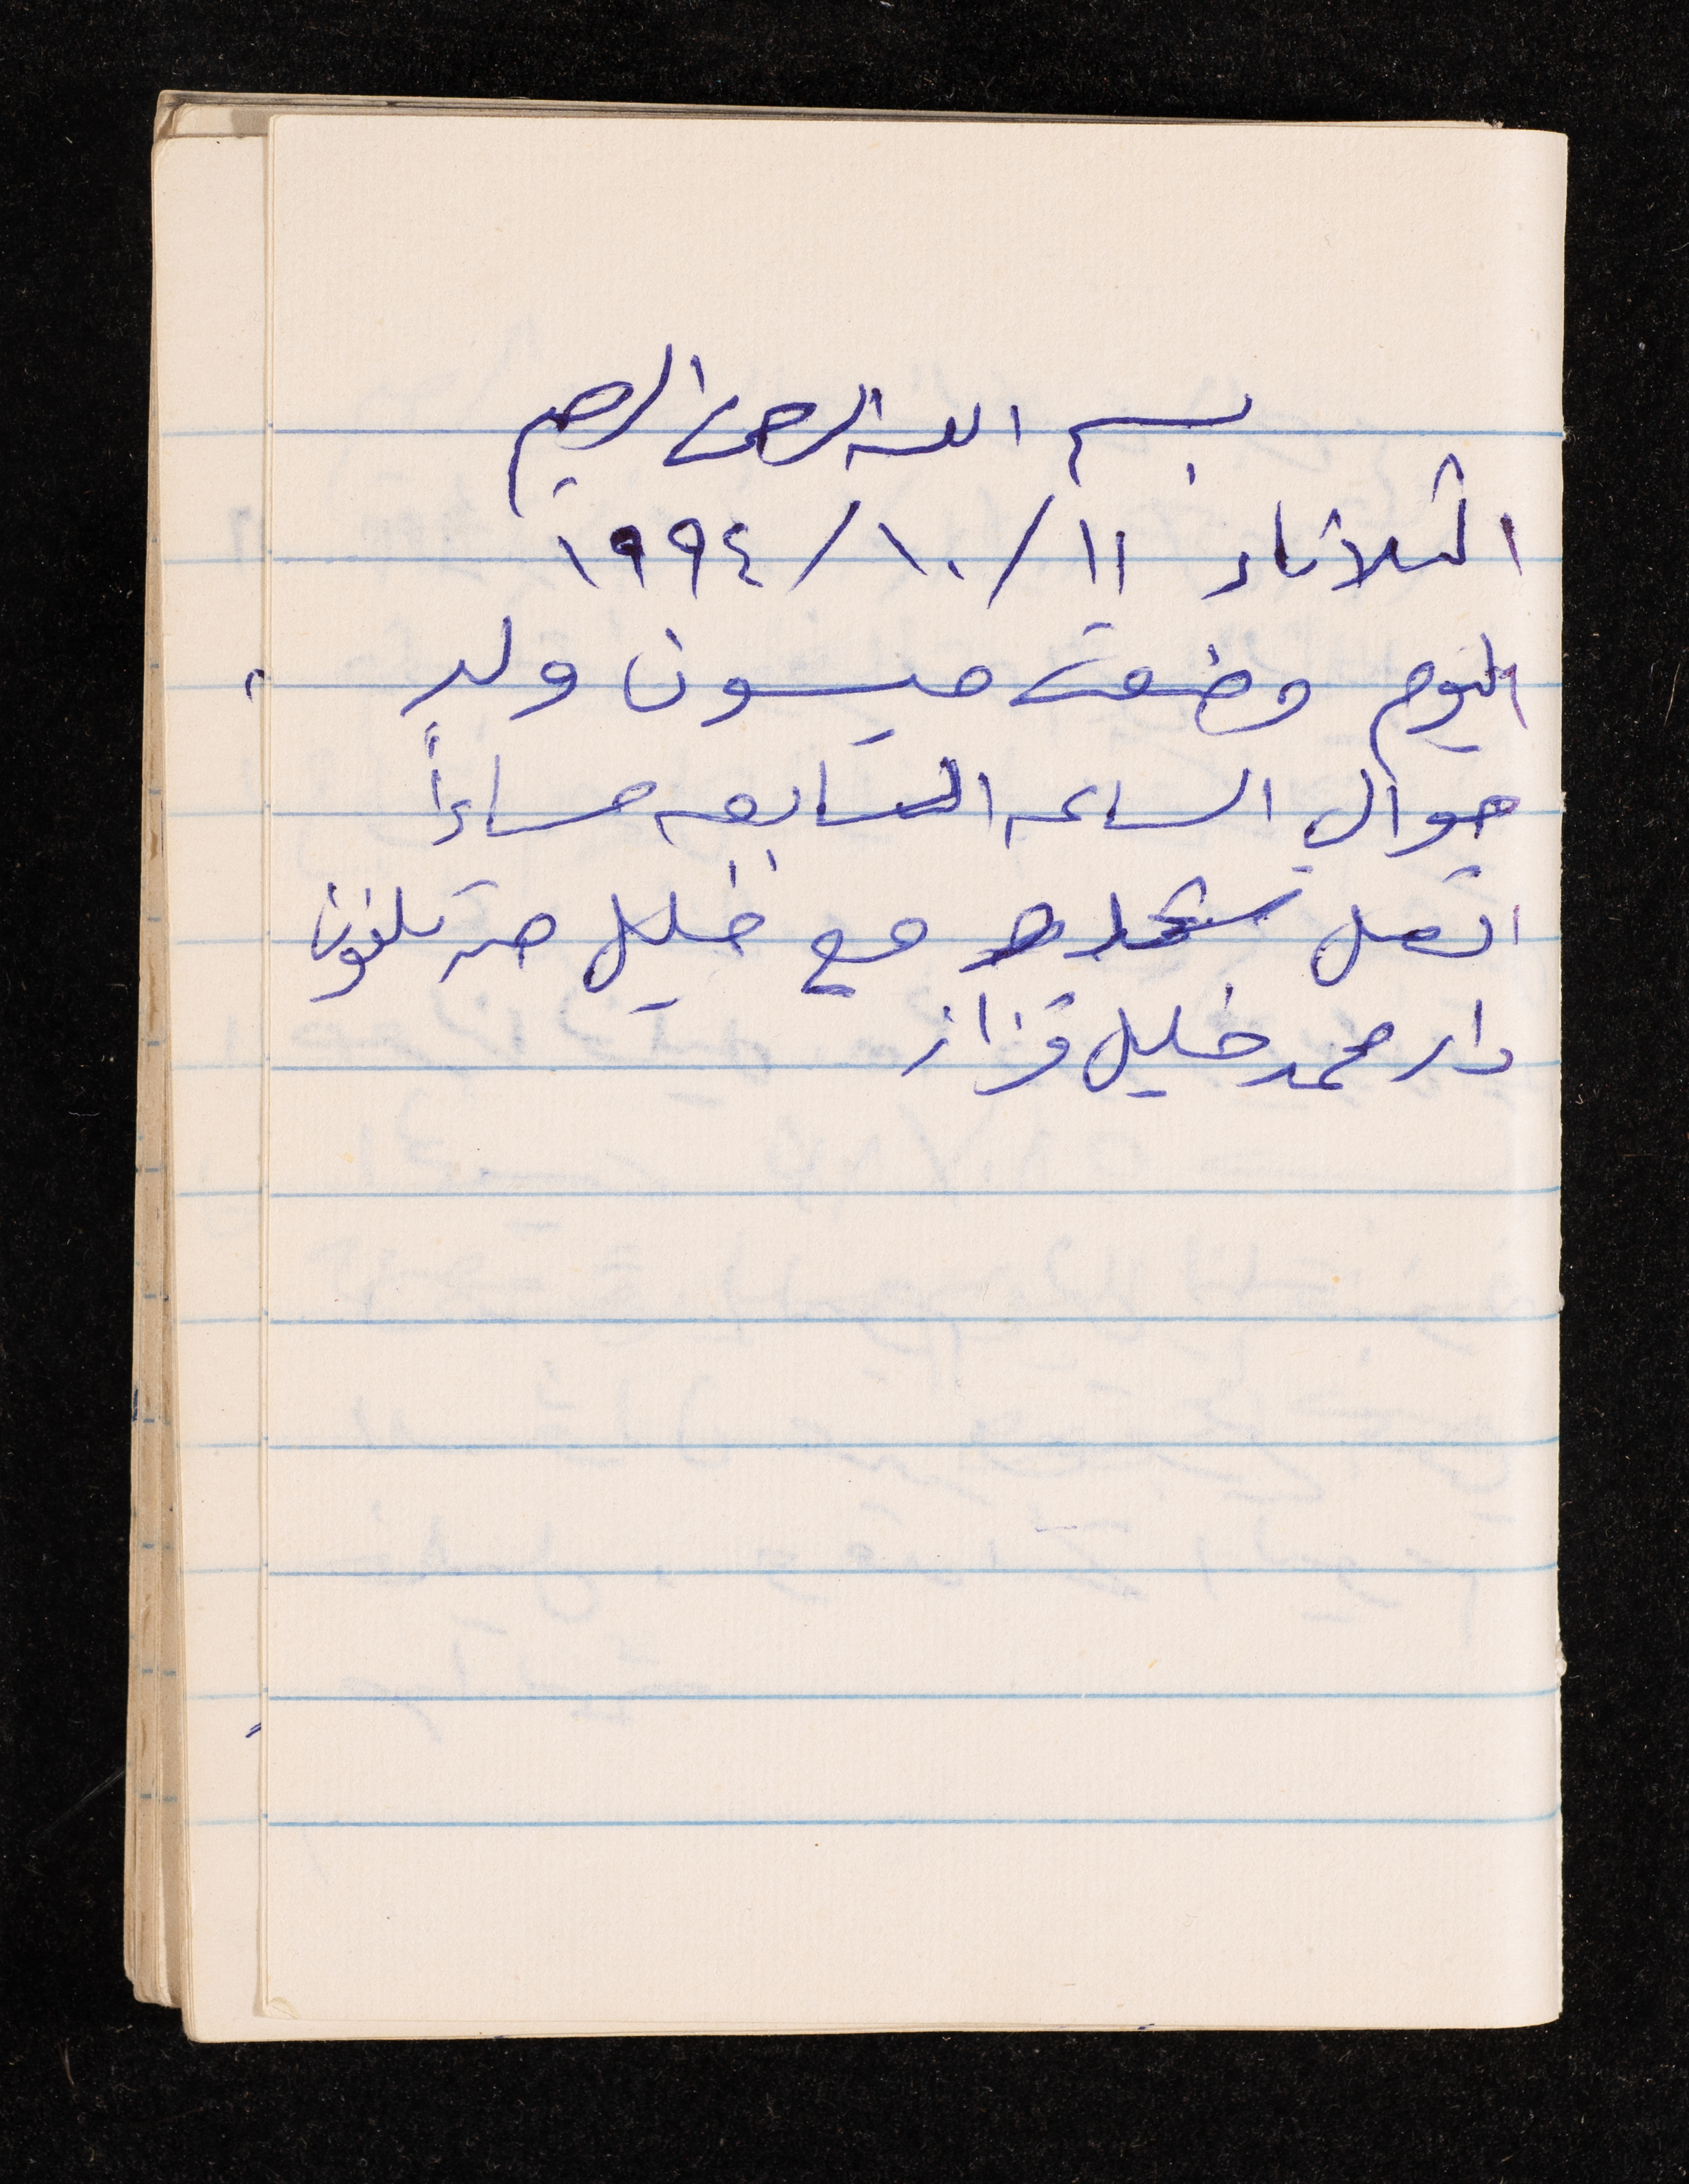 بسم الله الرحمن الرحيم
الثلاثاء ١١/١٠/١٩٩٤
اليوم وضعت ميسون ولد
حوالي الساعه السابعه مساءاً
اتصل مع خليل من تلفون
دار محمد خليل قزاز